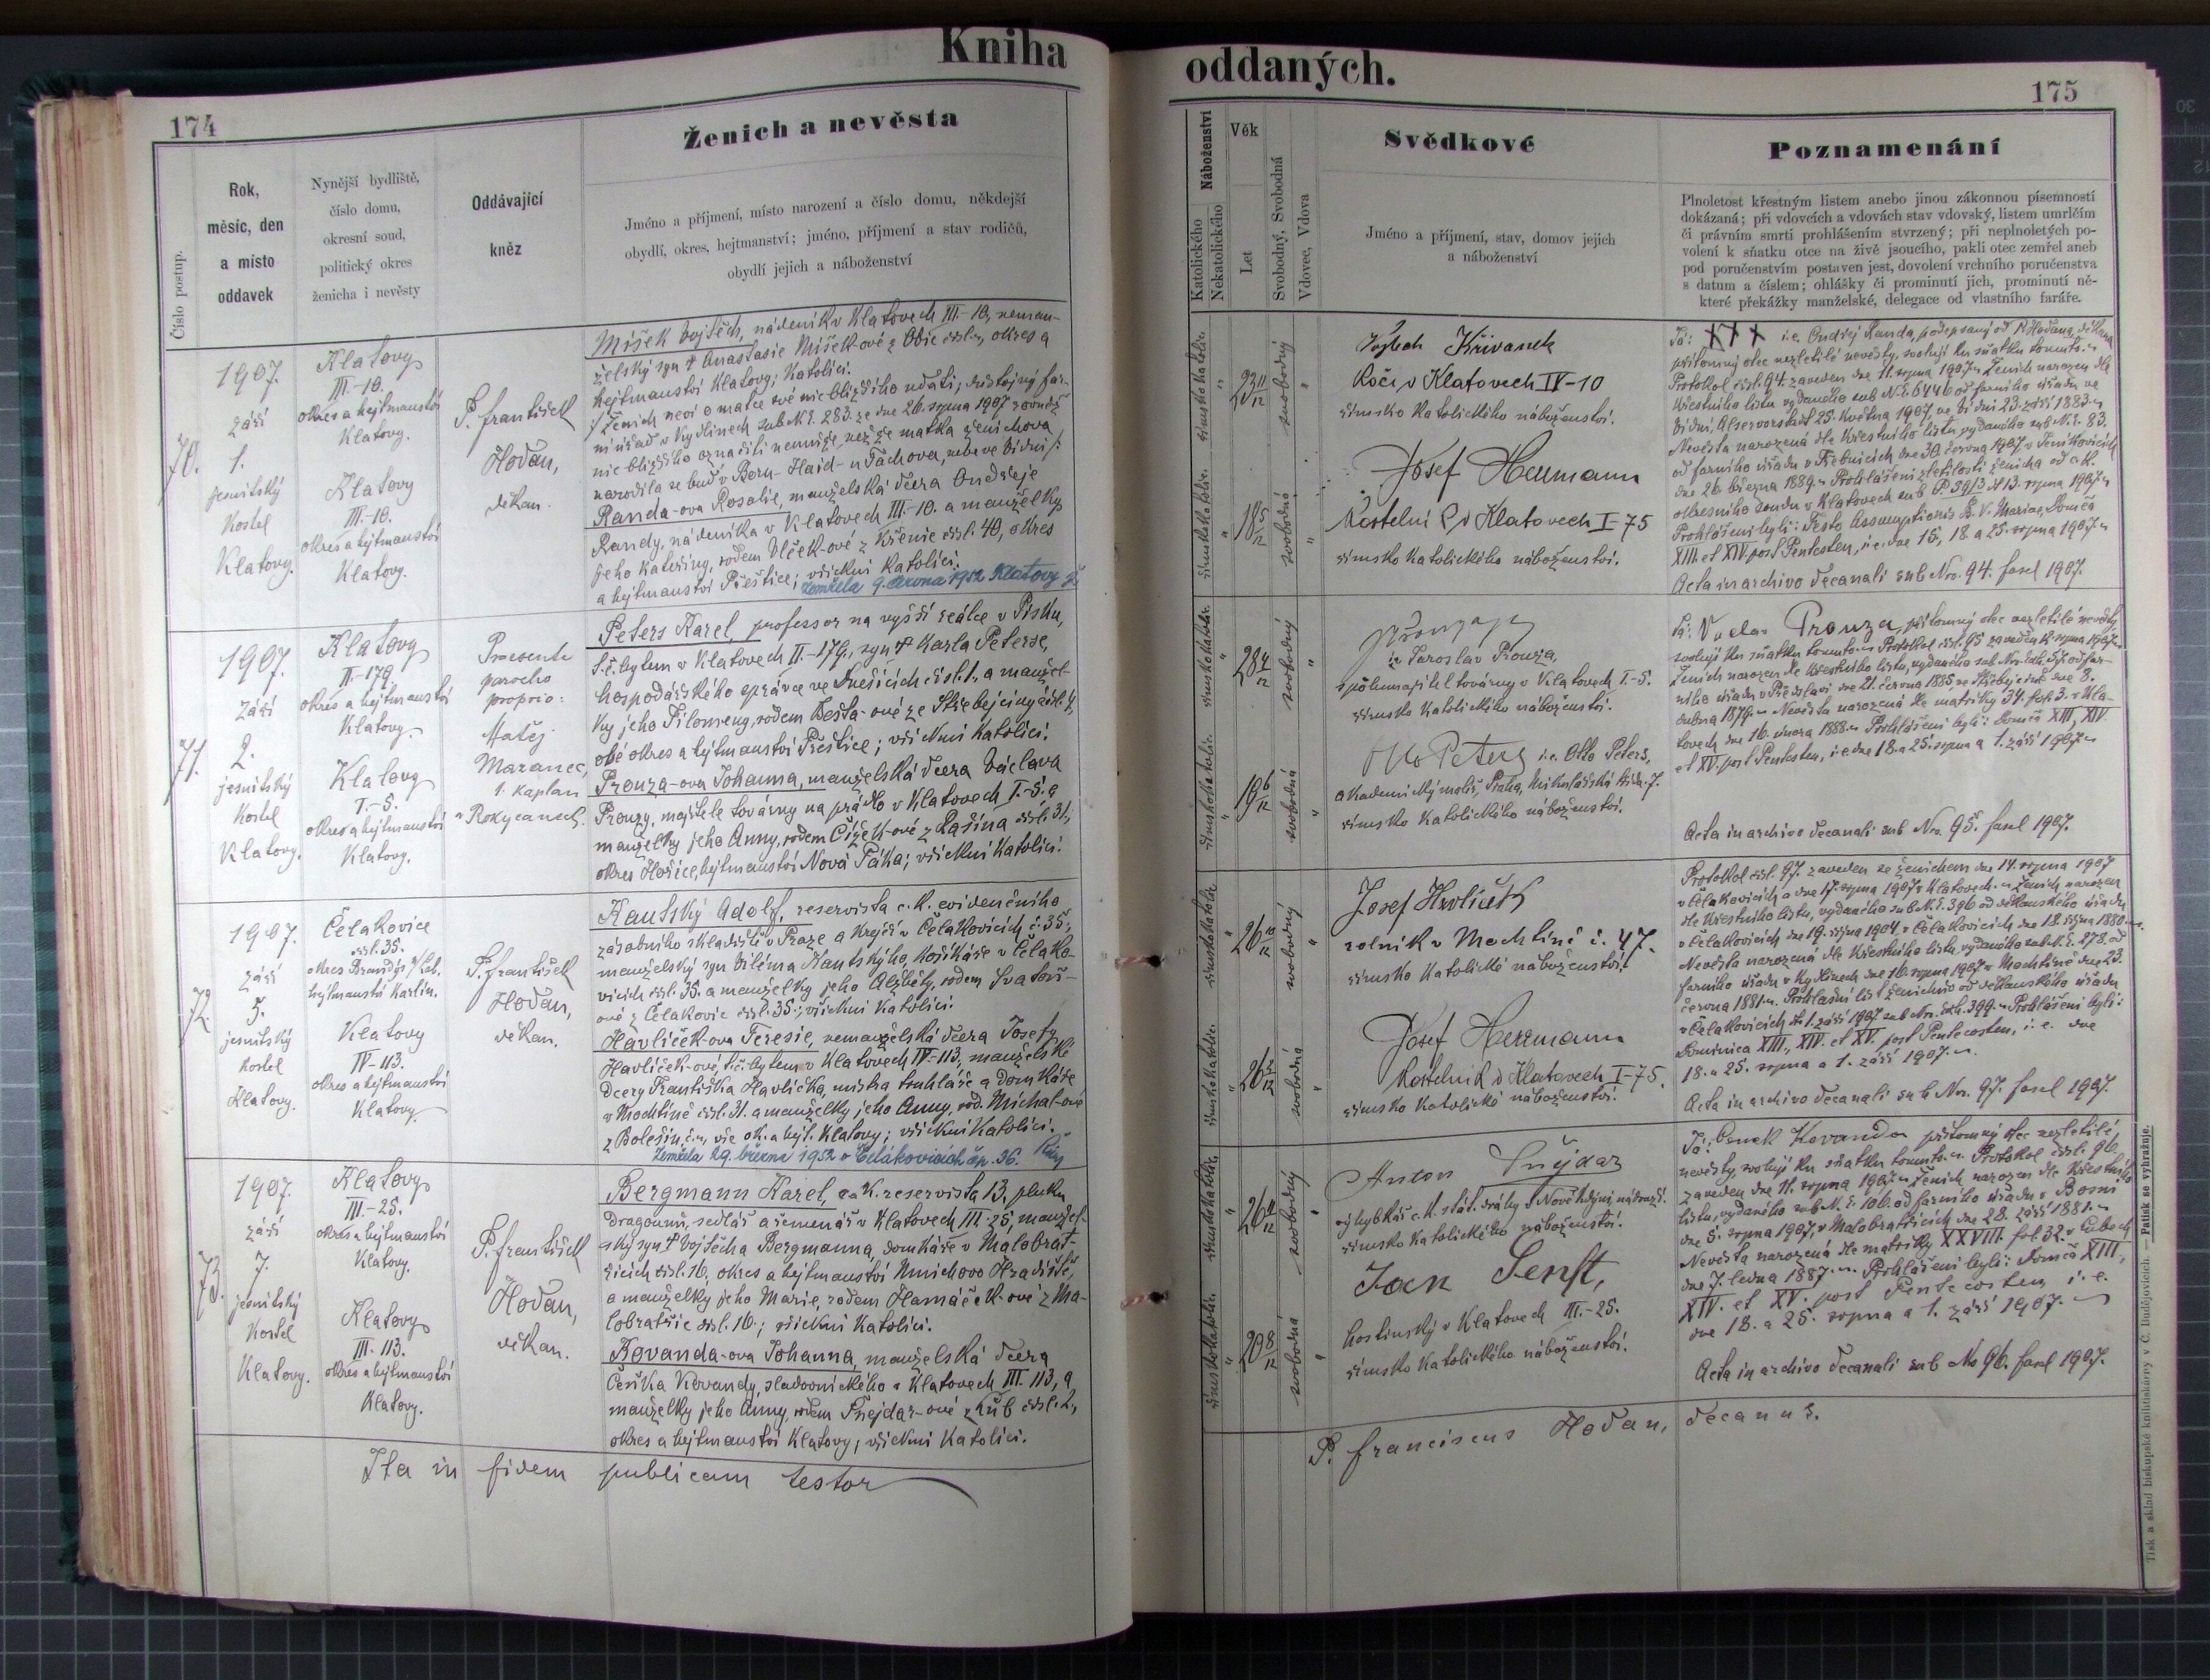 Kniha
174
Ženich a nevěsta
Číslo postup.
Rok,
měsíc, den
a místo
oddavek
Nynější bydliště,
číslo domu,
okresní soud,
politický okres
ženicha i nevěsty
Oddávající
kněz
Jméno a příjmení, místo narození a číslo domu, někdejší
obydlí, okres, hejtmanství; jméno, příjmení a stav rodičů,
obydlí jejich a náboženství
70.
1907.
září
1.
jesuitský
kostel
Klatovy.
Klatovy
III-10.
okres a hejtmanství
Klatovy.
Klatovy
III.-10.
okres a hejtmanství
Klatovy.
P. František
Hoďan,
děkan.
Míšek Vojtěch, nádeník v Klatovech III-10, neman-
želský syn † Anastasie Míšek-ové z Obic čísl. , okres a
hejtmanství Klatovy; katolíci.
/: Ženich neví o matce své nic bližšího udati; důstojný far-
ní úřad v Kydlinech sub N. E. 283. ze dne 26. srpna 1907 rovněž
nic bližšího označiti nemůže, než že matka ženichova
narodila se buď v Born-Haid-u Tachova, nebo ve Vídni /:
Randa-ova Rosalie, manželská dcera Ondřeje
Randy, nádeníka v Klatovech III.-10. a manželky
jeho Kateřiny, rodem Vlček-ové z Kšenic čísl. 40, okres
a hejtmanství Přeštice; všickni katolíci.
Zemřela 9. června 1952 Klatovy
71.
1907.
září
2.
jesuitský
kostel
Klatovy.
Klatovy
II-179
okres a hejtmanství
Klatovy.
Klatovy
I.-5.
okres a hejtmanství
Klatovy.
Praesente
parocho
proprio:
Matěj
Mazanec,
1. kaplan
v Rokycanech.
Peters Karel, professor na vyšší reálce v Písku,
t. č. bytem v Klatovech II.-179., syn † Karla Peterse,
hospodářského správce ve Dnešicích čísl. 1., a manžel-
ky jeho Filomeny, rodem Bešta-ové ze Střebejciny čísl. 4,
obé okres a hejtmanství Přeštice; všickni katolíci.
Prouza-ova Johanna, manželská dcera Václava
Prouzy, majitele továrny na prádlo v Klatovech I.-5. a
manželky jeho Anny, rodem Čížek-ové z Rašína čísl. 31.,
okres Hořice, hejtmanství Nová Paka; všickni katolíci.
72.
1907.
září
5.
jesuitský
kostel
Klatovy.
Čelakovice
čísl. 35.
okres Brandýs n/Lab.
hejtmanství Karlín.
Klatovy
IV-113.
okres a hejtmanství
Klatovy
P. František
Hoďan,
děkan.
Kautský Adolf, reservista c. k. evidenčního
zásobního skladiště v Praze a krejčí v Čelakovicích č. 35;
manželský syn Viléma Kautského, košíkáře v Čelako-
vicích čísl. 35. a manželky jeho Alžběty, rodem Svatoš-
ové z Čelakovic čísl. 35.; všickni katolíci.
Havlíček-ova Teresie, nemanželská dcera Josefy
Havlíček-ové, t. č. bytem v Klatovech IV-113, manželské
dcery Františka Havlíčka, mistra truhláře a domkáře
v Mochtíně čísl. 31. a manželky jeho Anny, rod. Michal-ové
z Bolešin, vše ok. a hejt. Klatovy; všickni katolíci.
Zemřela 29. března 1952 v Čelákovicích čp. 36.
73.
1907.
září
7.
jesuitský
kostel
Klatovy.
Klatovy
III.-25.
okres a hejtmanství
Klatovy.
Klatovy
III-113.
okres a hejtmanství
Klatovy.
P. František
Hoďan,
děkan.
Bergmann Karel, c. a k. reservista 13. pluku
dragounů, sedlář a řemenář v Klatovech III-25, manžel-
ský syn † Vojtěcha Bergmanna, domkáře v Malobrat-
řicích čísl. 16, okres a hejtmanství Mnichovo Hradiště,
a manželky jeho Marie, rodem Hamáček-ové z Ma-
lobratřic čísl. 16.; všickni katolíci.
Kovanda-ova Johanna, manželská dcera
Čeňka Kovandy, sladovnického v Klatovech III. 113, a
manželky jeho Anny, rodem Šnejdar-ové z Lub čísl. 2.,
okres a hejtmanství Klatovy; všickni katolíci.
Ita in fidem publicam testor
oddaných.
175
Náboženství
Katolického
Nekatolického
Věk
Let
Svobodný, Svobodná
Vdovec, Vdova
Svědkové
Jméno a příjmení, stav, domov jejich
a náboženství
Poznamenání
Plnoletost křestným listem anebo jinou zákonnou písemností
dokázaná; při vdovcích a vdovách stav vdovský, listem umrlčím
či právním smrti prohlášením stvrzený; při neplnoletých po-
volení k sňatku otce na živě jsoucího, pakli otec zemřel aneb
pod poručenstvím postaven jest, dovolení vrchního poručenstva
s datum a číslem; ohlášky či prominutí jich, prominutí ně-
které překážky manželské, delegace od vlastního faráře.
římsko katolic.
23 11/12
svobodný
římsko katolic.
18 5/12
svobodná
Vojtěch Křivanek
Kočí v Klatovech IV-10
římsko katolického náboženství.
Josef Herrmann
Kostelní v Klatovech I-75
římsko katolického náboženství.
Já: XXX i. e. Ondřej Randa, podepsaný od P. Hoďana, děkana
přítomný otec nezletilé nevěsty, svoluji ku sňatku tomuto.
Protokol čísl. 94. zaveden dne 11. srpna 1907. Ženich narozen dle
křestního listu vydaného sub N. E. 6446 od farního úřadu ve
Vídni, Alservorstadt 25. května 1907, ve Vídni 23. září 1883.
Nevěsta narozená dle křestního listu vydaného sub N. E. 83.
od farního úřadu v Třebnicích dne 30. června 1907 v
dne 26. března 1889. Prohlášení zletilosti ženicha od c. k.
okresního soudu v Klatovech sub P. 39/3 dt 13. srpna 1907.
Prohlášení byli: Festo Assumptionis B. V. Mariae, Domca
XIII. et XIV. post Pentecosten, i. e. dne 15., 18. a 25. srpna 1907.
Acta in archivo decanali sub Nro. 94. fascl 1907.
římsko katolic.
28 4/12
svobodný
římsko katolic.
19 6/12
svobodná
i. e. Jaroslav Prouza,
spolumajitel továrny v Klatovech I.-5.
římsko katolického náboženství.
Otto Peters i. e. Otto Peters,
akademický malíř, Praha, Mikulášská třída-7.
římsko katolického náboženství.
Já: Václav Prouza, přítomný otec nezletilé nevěsty,
svoluji ku sňatku tomuto. Protokol čísl. 95 zaveden srpna 1907.
Ženich narozen dle křestního listu, vydaného sub Nro. od far-
ního úřadu v Předslavi dne 21. června 1885 ve Střebejcině dne 8.
dubna 1879. Nevěsta narozená dle matriky 34. fol. 3. v Kla-
tovech dne 16. února 1888. Prohlášení byli: Domca XIII, XIV.
et XV. post Pentecosten, i. e. dne 18. a 25. srpna a 1. září 1907.
Acta in archivo decanali sub Nro. 95. fascl 1907.
římsko katolic.
26 10/12
svobodný
římsko katolic.
26 2/12
svobodná
Josef Havlíček
rolník v Mochtíně č. 47.
římsko katolické náboženství.
Josef Herrmann
Kostelník v Klatovech I-75.
římsko katolické náboženství.
Protokol čísl. 97. zaveden se ženichem dne 14. srpna 1907
v Čelakovicích a dne 17. srpna 1907 v Klatovech. Ženich narozen
dle křestního listu, vydaného sub N. E. 396 od děkanského úřadu
v Čelakovicích dne 19. října 1904 v Čelakovicích dne 18. října 1880.
Nevěsta narozená dle křestního listu vydaného sub N. E. 278, od
farního úřadu v Kydlinech dne 16. srpna 1907 v Mochtíně dne 23.
června 1881. Prohlašní list ženichův od děkanského úřadu
v Čelakovicích dt 1. září 1907 sub Nro. Exh. 399. Prohlášeni byli:
Dominica XIII., XIV. et XV. post Pentecosten, i. e. dne
18. a 25. srpna a 1. září 1907.
Acta in archivo decanali sub Nro. 97. fascl 1907.
římsko katolic.
26
svobodný
římsko katolic.
20 8/12
svobodná
Anton Šnejdar
výhybkář c. k. stát. dráhy v Nové Kdyni nádraží.
římsko katolického náboženství.
Jan Senft,
hostinský v Klatovech III.-25.
římsko katolického náboženství.
Já: Čeněk Kovanda přítomný otec nezletilé
nevěsty, svoluji ku sňatku tomuto. Protokol čísl. 96,
zaveden dne 11. srpna 1907. Ženich narozen dle křestního
listu, vydaného sub N. E. 106. od farního úřadu v Bosni
dne 5. srpna 1907, v Malobratřicích dne 28. září 1881.
Nevěsta narozená dle matriky XXVIII. fol. 32. v Lubech
dne 7. ledna 1887. Prohlášeni byli: Domca XIII.,
XIV. et XV. post Pentecosten i. e.
dne 18. a 25. srpna a 1. září 1907.
Acta in archivo decanali sub No 96. fascl 1907.
P. Franciscus Hoďan, decanus.
Tisk a sklad biskupské knihtiskárny v Č. Budějovicích. — Patisk se vyhražuje.